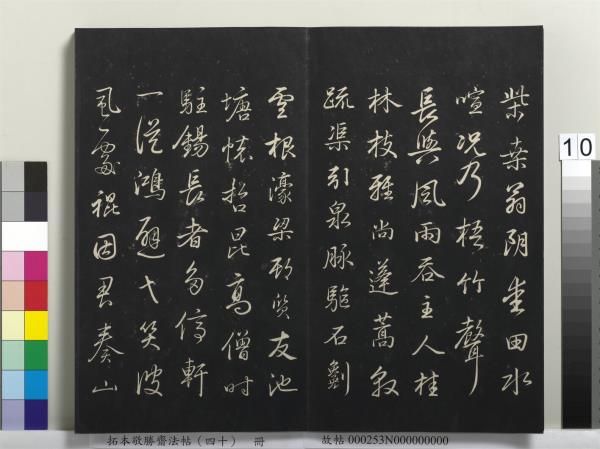 柴桑翁阴垂田水
喧况乃梧竹聲
長與風雨吞主人桂
林枝雅尚蓬蒿敦
疏渠引泉脉驅石劚
雲根濠梁郗賓友池
塘惊哲昆高僧时
駐錫長者多停軒
一淫鴻避弋笑波
風處褌因君奏山
10
拓本敬勝齋法帖（四十） 冊
故帖 000253N000000000